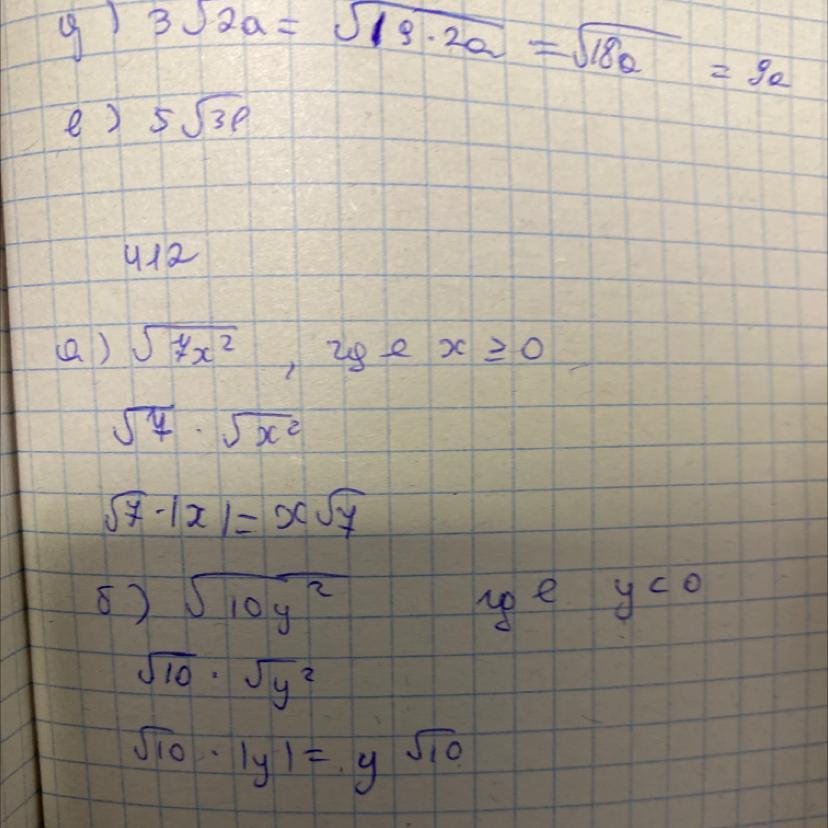 д) 3√2a = √9·2a = √18a = 9a
е) 5√3
412
а) √7x², где x ≥ 0
√7 · √x²
√7 · |x| = x√7
б) √10y² где y < 0
√10 · √y²
√10 · |y| = y √10